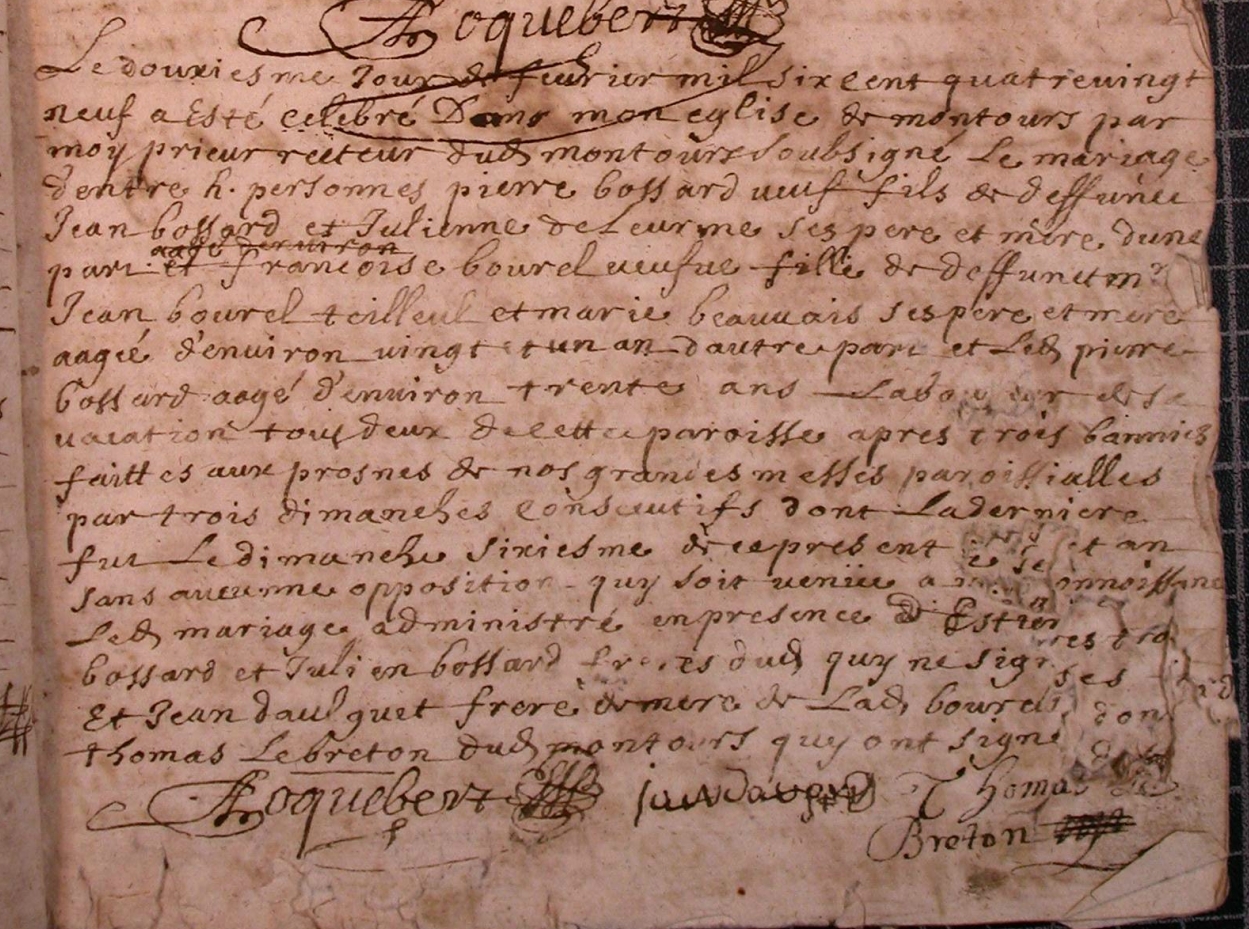 Roquebert
Le douxiesme Jour de feuurier mil six cent quatreuingt
neuf a Esté celebré Dans mon eglise de montours par
moy prieur recteur dud montours soubsigné Le mariage
dentre h. personnes pierre bossard ueuf fils de deffunct
Jean bossard et Julienne deLeurme ses pere et mere dune
aagé denuiron
part et francoise bourel ueufue fille de deffunct mr
Jean bourel teilleul et marie beauuais ses pere et mere
aageé d'enuiron uingt et un an dautre part et Led pierre
bossard aagé d'enuiron trente ans Laboureur de sa
uacation tous deux de cette paroisse apres trois bannies
faittes aux prosnes de nos grandes messes paroissialles
par trois dimanches consecutifs dont La derniere
fut Le dimanche sixiesme de ce present et an
sans aucunne opposition quy soit uenüe a connoissance
Led mariage administré en presence d'Estien
bossard et Julien bossard freres dud quy ne sig
Et Jean daulguet frere de mere de Lad bourel
thomas Lebreton dud montours quy ont signé
Roquebert Thomas
Breton